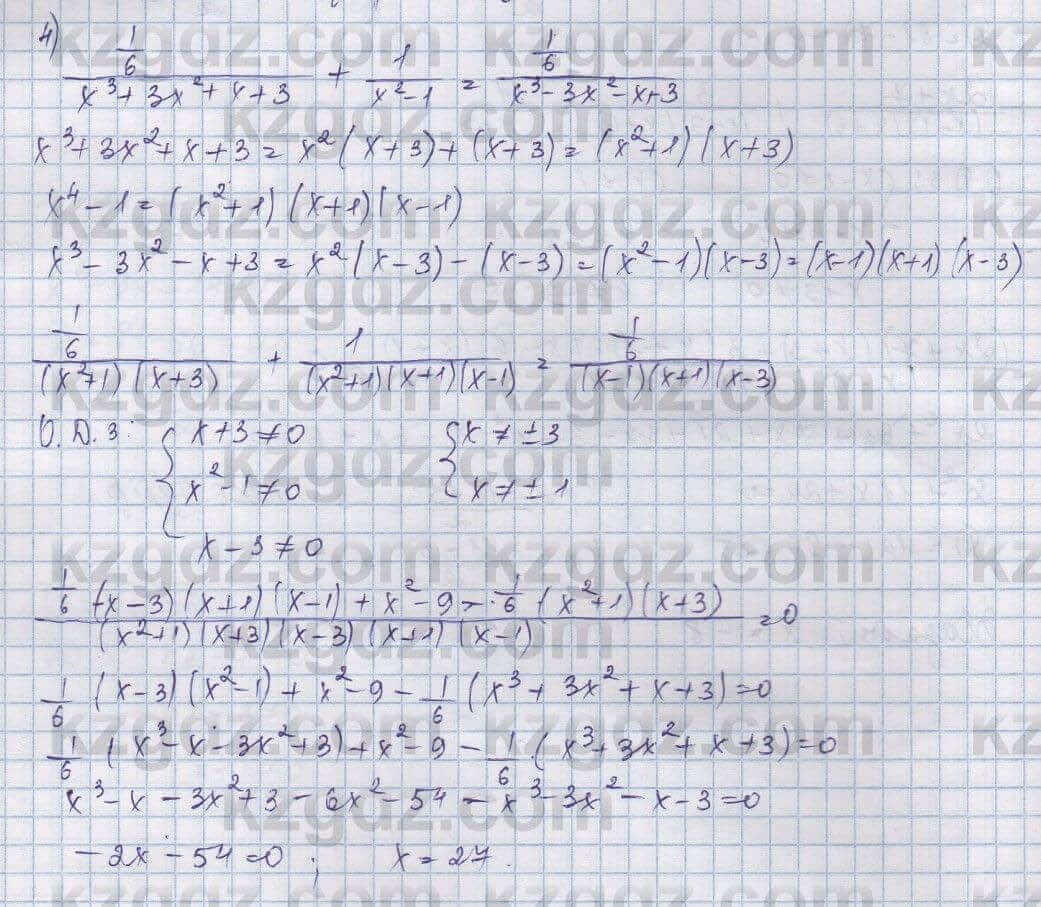 4) (1/6)/(x³+3x²+x+3) + 1/(x²-1) = (1/6)/(x³-3x²-x+3)
x³+3x²+x+3 = x²(x+3)+(x+3) = (x²+1)(x+3)
x⁴-1 = (x²+1)(x+1)(x-1)
x³-3x²-x+3 = x²(x-3)-(x-3) = (x²-1)(x-3) = (x-1)(x+1)(x-3)
(1/6)/((x²+1)(x+3)) + 1/((x²+1)(x+1)(x-1)) = (1/6)/((x-1)(x+1)(x-3))
О.Д.З: { x+3≠0 { x≠±3
x²-1≠0 x≠±1
x-3≠0
(1/6·(x-3)(x+1)(x-1)+x²-9-1/6·(x²+1)(x+3))/((x²+1)(x+3)(x-3)(x+1)(x-1)) = 0
1/6(x-3)(x²-1)+x²-9-1/6(x³+3x²+x+3)=0
1/6(x³-x-3x²+3)+x²-9-1/6(x³+3x²+x+3)=0
x³-x-3x²+3-6x²-54-x³-3x²-x-3=0
-2x-54=0; x=27.
kzgdz.com